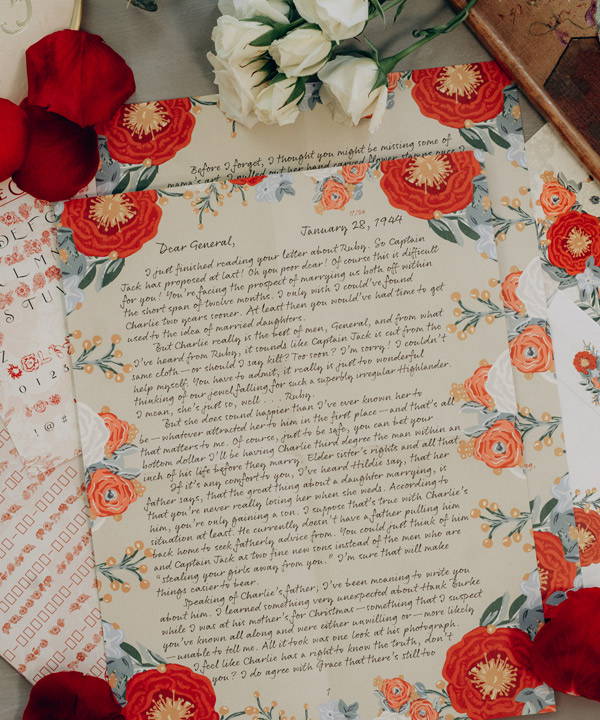 Before I forget, I thought you might be missing some of
mama's art. I pulled out her hand carved flower stamps over I
17/58
January 28, 1944
Dear General,
I just finished reading your letter about Ruby. So Captain
Jack has proposed at last! Oh you poor dear! Of course this is difficult
for you! You're facing the prospect of marrying us both off within
the short span of twelve months. I only wish I could've found
Charlie two years sooner. At least then you would've had time to get
used to the idea of married daughters.
But Charlie really is the best of men, General, and from what
I've heard from Ruby, it sounds like Captain Jack is cut from the
same cloth—or should I say kilt? Too soon? I'm sorry! I couldn't
help myself. You have to admit, it really is just too wonderful
thinking of our jewel falling for such a superbly irregular Highlander.
I mean, she's just so, well . . . Ruby.
But she does sound happier than I've ever known her to
be—whatever attracted her to him in the first place—and that's all
that matters to me. Of course, just to be safe, you can bet your
bottom dollar I'll be having Charlie third degree the man within an
inch of his life before they marry. Elder sister's rights and all that.
If it's any comfort to you, I've heard Hildie say, that her
father says, that the great thing about a daughter marrying, is
that you're never really losing her when she weds. According to
him, you're only gaining a son. I suppose that's true with Charlie's
situation at least. He currently doesn't have a father pulling him
back home to seek fatherly advice from. You could just think of him
and Captain Jack as two fine new sons instead of the men who are
"stealing your girls away from you." I'm sure that will make
things easier to bear.
Speaking of Charlie's father; I've been meaning to write you
about him. I learned something very unexpected about Hank Burke
while I was at his mother's for Christmas—something that I suspect
you've known all along and were either unwilling or—more likely
—unable to tell me. All it took was one look at his photograph.
I feel like Charlie has a right to know the truth, don't
you? I do agree with Grace that there's still too
1
0 1 2 3
! @ #